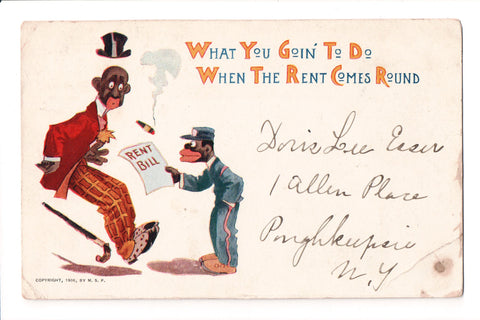 WHAT YOU GOIN' TO DO
WHEN THE RENT COMES ROUND
RENT
BILL
Doris Lee Esser
1 Allen Place
Poughkeepsie
N.Y
COPYRIGHT, 1906, BY M. S. P.